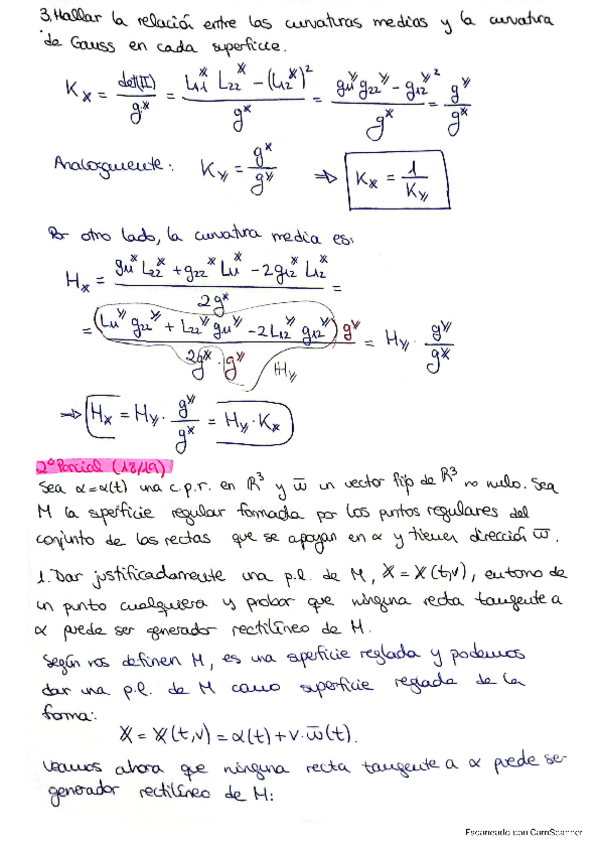 3. Hallar la relación entre las curvaturas medias y la curvatura
de Gauss en cada superficie.
K_X = det(II)/g^X = (L11^X L22^X - (L12^X)^2)/g^X = (g11^Y g22^Y - g12^Y^2)/g^X = g^Y/g^X
Analogamente: K_Y = g^X/g^Y ⇒ K_X = 1/K_Y
Por otro lado, la curvatura media es:
H_X = (g11^X L22^X + g22^X L11^X - 2g12^X L12^X)/2g^X =
= (L11^Y g22^Y + L22^Y g11^Y - 2L12^Y g12^Y) g^Y/(2g^X · g^Y) = H_Y · g^Y/g^X
H_Y
⇒ H_X = H_Y · g^Y/g^X = H_Y · K_X
2º Parcial (18/19)
Sea α=α(t) una c.p.r. en R^3 y w̄ un vector fijo de R^3 no nulo. Sea
M la superficie regular formada por los puntos regulares del
conjunto de las rectas que se apoyan en α y tienen dirección w̄.
1. Dar justificadamente una p.l. de M, X = X(t,v), entorno de
un punto cualquiera y probar que ninguna recta tangente a
α puede ser generador rectilíneo de M.
Según nos definen M, es una superficie reglada y podemos
dar una p.l. de M como superficie reglada de la
forma:
X = X(t,v) = α(t) + v·w̄(t).
Veamos ahora que ninguna recta tangente a α puede ser
generador rectilíneo de M:
Escaneado con CamScanner